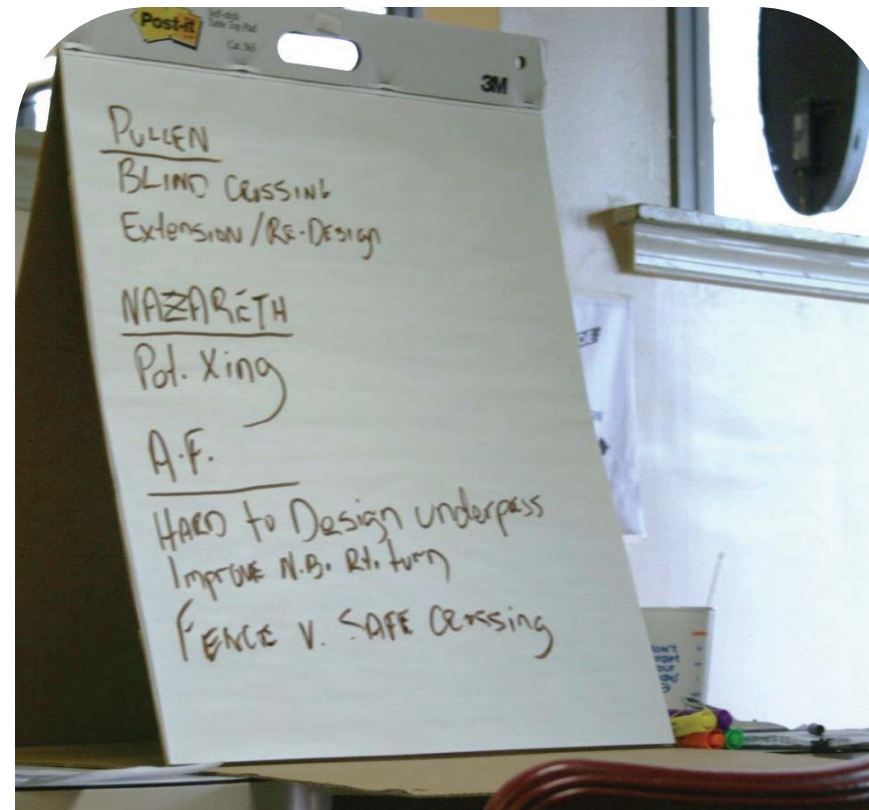 Post-it
Self-stick
Table Top Pad
Cat. 563
3M
PULLEN
BLIND CROSSING
Extension/RE-DESIGN
NAZARETH
Pot. Xing
A.F.
HARD to Design underpass
Improve N.B. Rt. turn
FENCE V. SAFE CROSSING